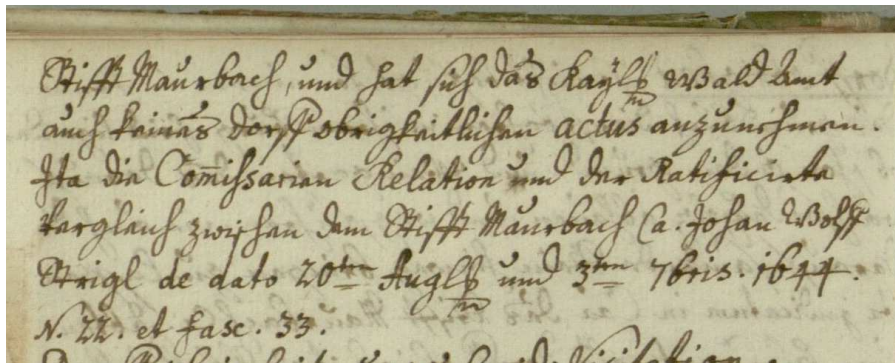 Stifft Maurbach, und hat sich das Kayls. Wald Amt
auch keines dorff obrigkeitlichen actus anzunehmen.
Ita die Com̅issarien Relation und der Ratificirte
Vergleich zwischen dem Stifft Maurbach Ca. Johan Wolff
Strigl de dato 20ten Augs. und 3ten 7bris. 1644.
N. 22. et fasc. 33.
Visitation